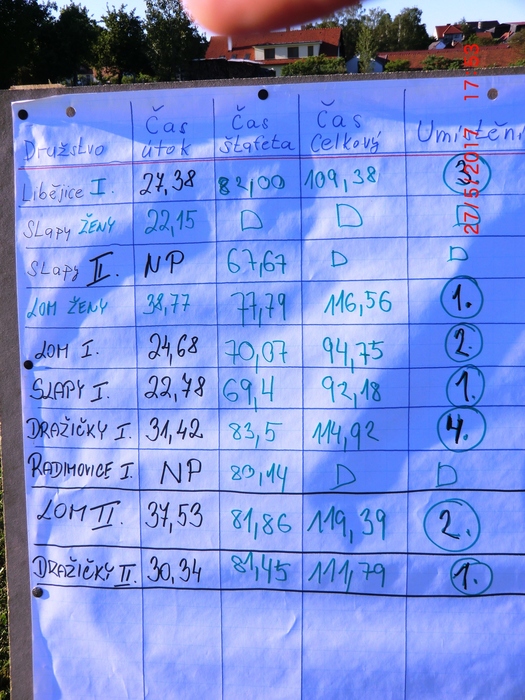 Družstvo Čas útok Čas štafeta Čas Celkový Umístění
Libějice I. 27,38 82,00 109,38 3.
Slapy ŽENY 22,15 D D D
Slapy II. NP 67,67 D D
LOM ŽENY 38,77 77,79 116,56 1.
LOM I. 24,68 70,07 94,75 2.
SLAPY I. 22,78 69,4 92,18 1.
DRAŽIČKY I. 31,42 83,5 114,92 4.
RADIMOVICE I. NP 80,14 D D
LOM II. 37,53 81,86 119,39 2.
DRAŽIČKY II. 30,34 81,45 111,79 1.
27/5/2017 17:53